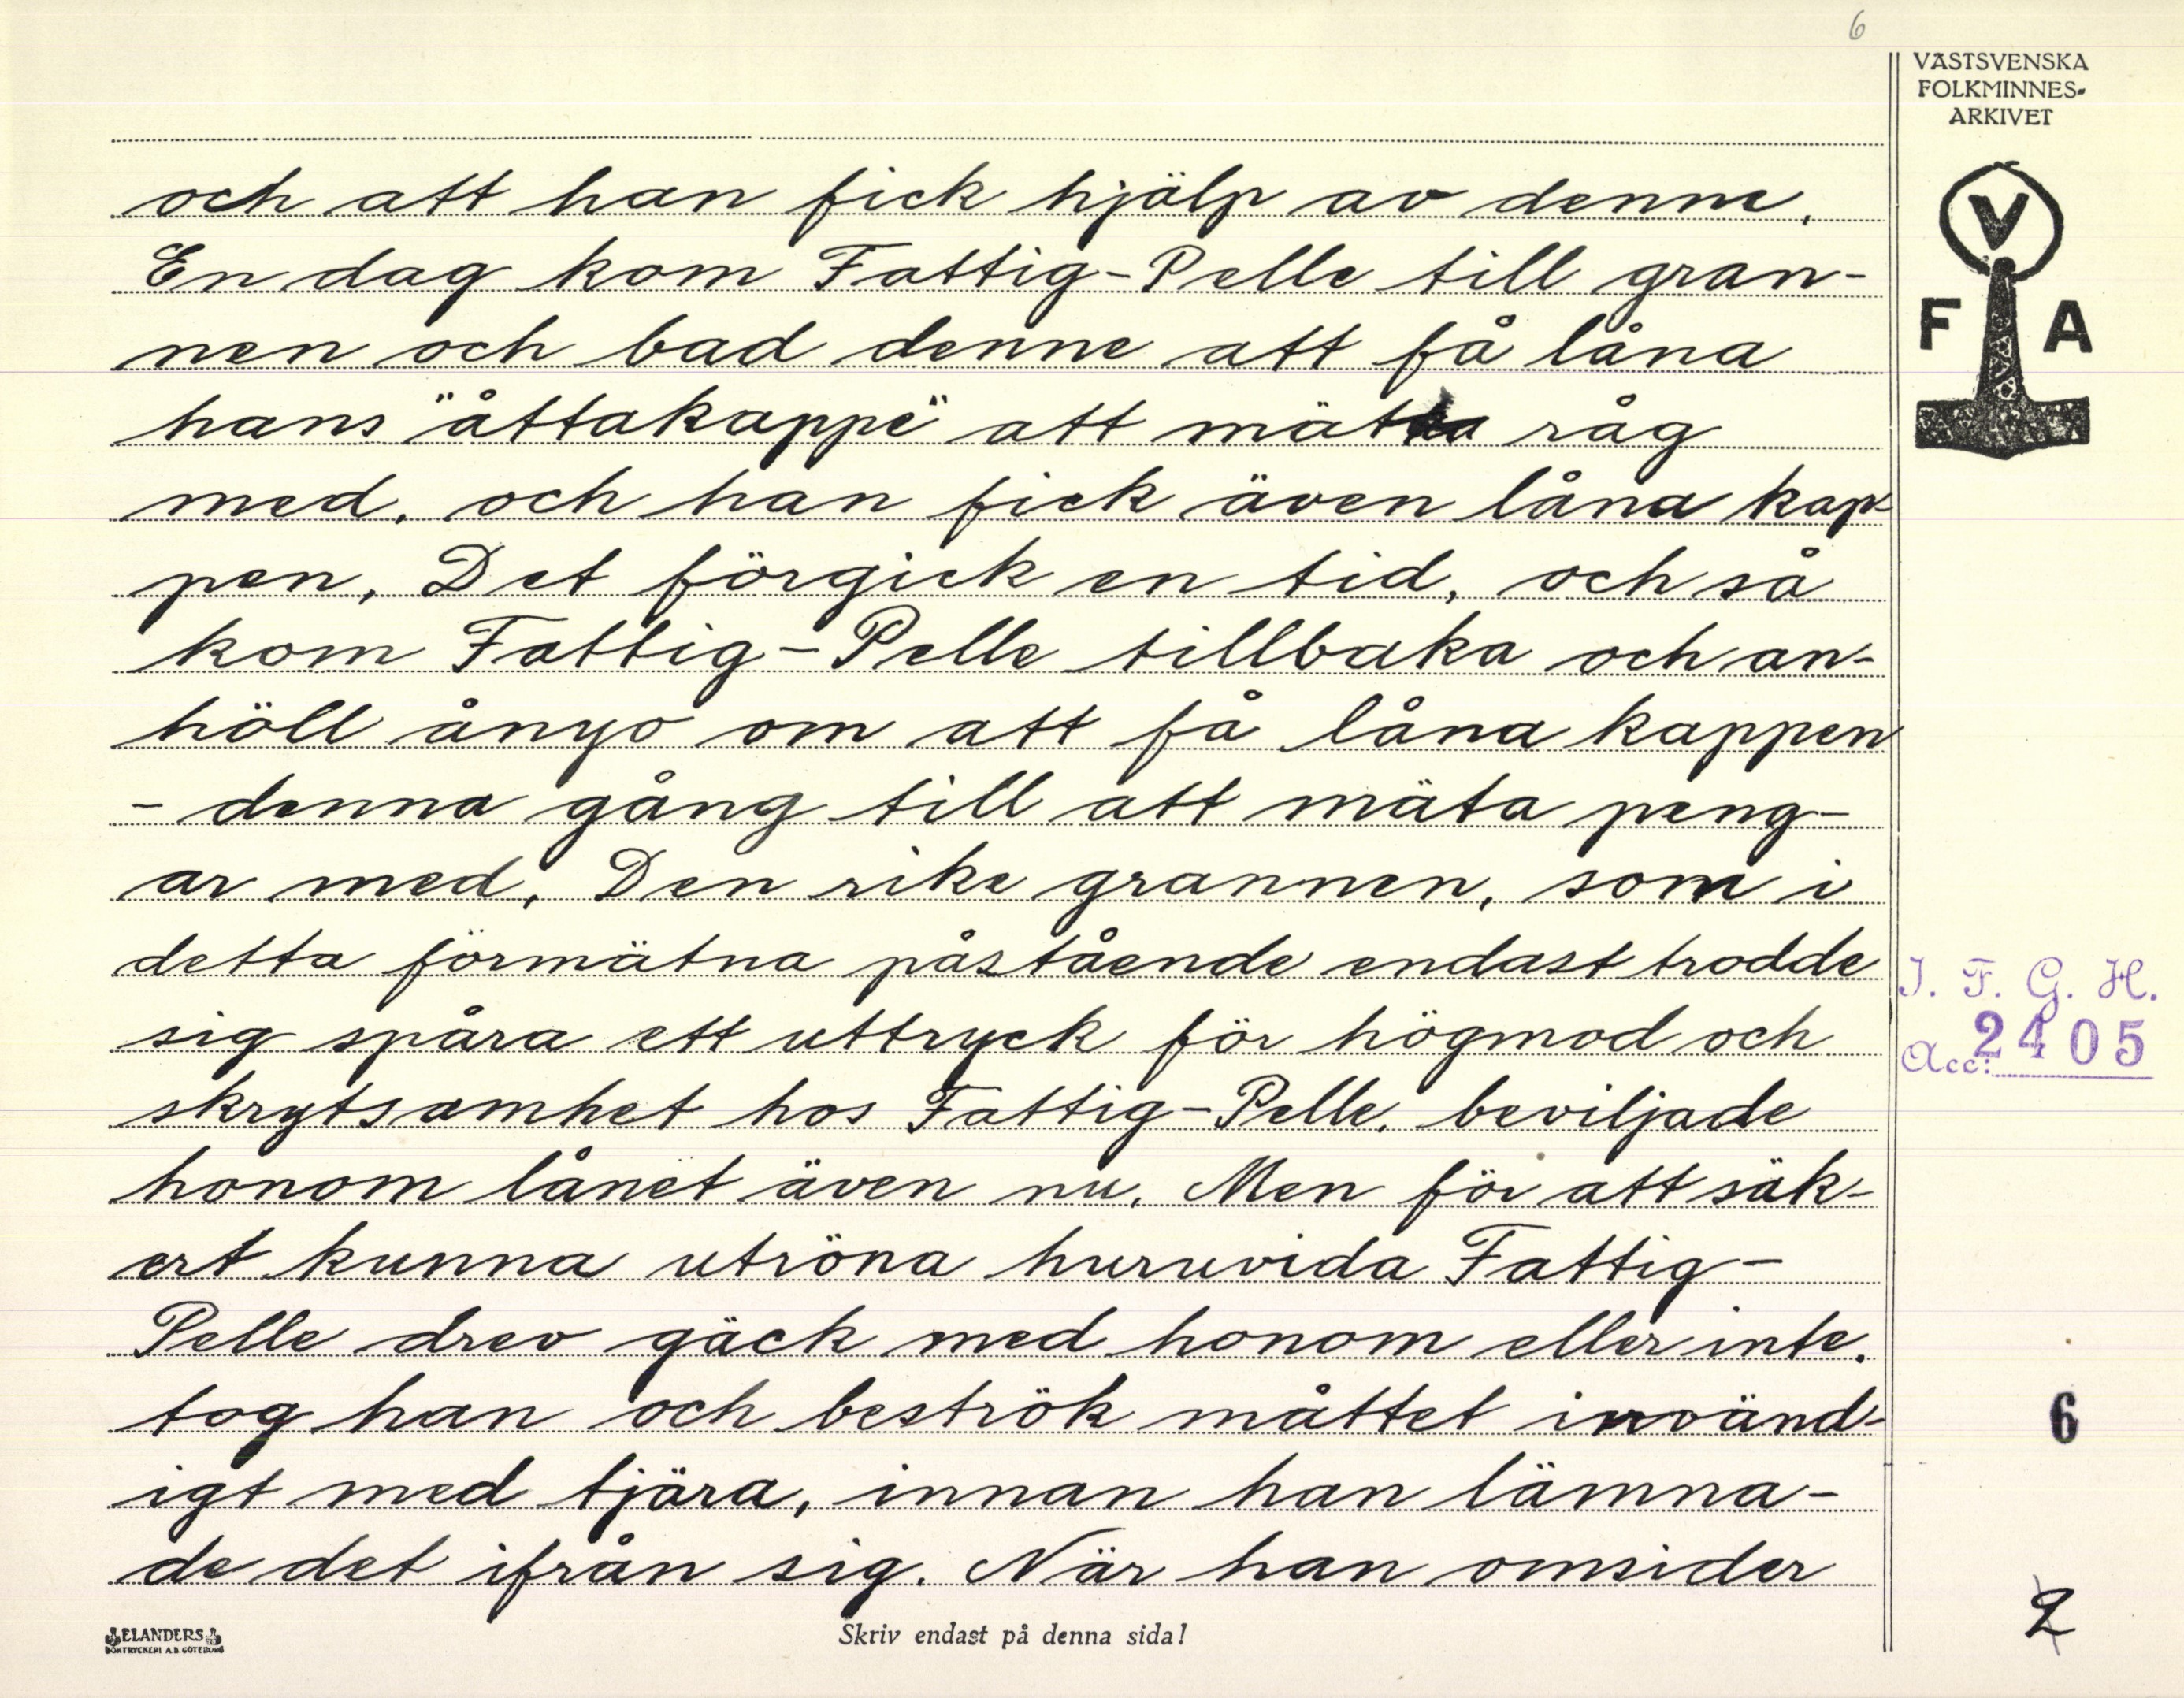 6
VÄSTSVENSKA
FOLKMINNES-
ARKIVET
V
F A
och att han fick hjälp av denne.
En dag kom Fattig-Pelle till gran-
nen och bad denne att få låna
hans "åttakappe" att mäta råg
med, och han fick även låna kap-
pen. Det förgick en tid, och så
kom Fattig-Pelle tillbaka och an-
höll ånyo om att få låna kappen
- denna gång till att mäta peng-
ar med. Den rike grannen, som i
detta förmätna påstående endast trodde
sig spåra ett uttryck för högmod och
skrytsamhet hos Fattig-Pelle, beviljade
honom lånet även nu. Men för att säk-
ert kunna utröna huruvida Fattig-
Pelle drev gäck med honom eller inte,
tog han och beströk måttet invänd-
igt med tjära, innan han lämna-
de det ifrån sig. När han omsider
I. F. G. H.
Acc: 2405
6
2
ELANDERS
BOKTRYCKERI A.B. GÖTEBORG
Skriv endast på denna sida!